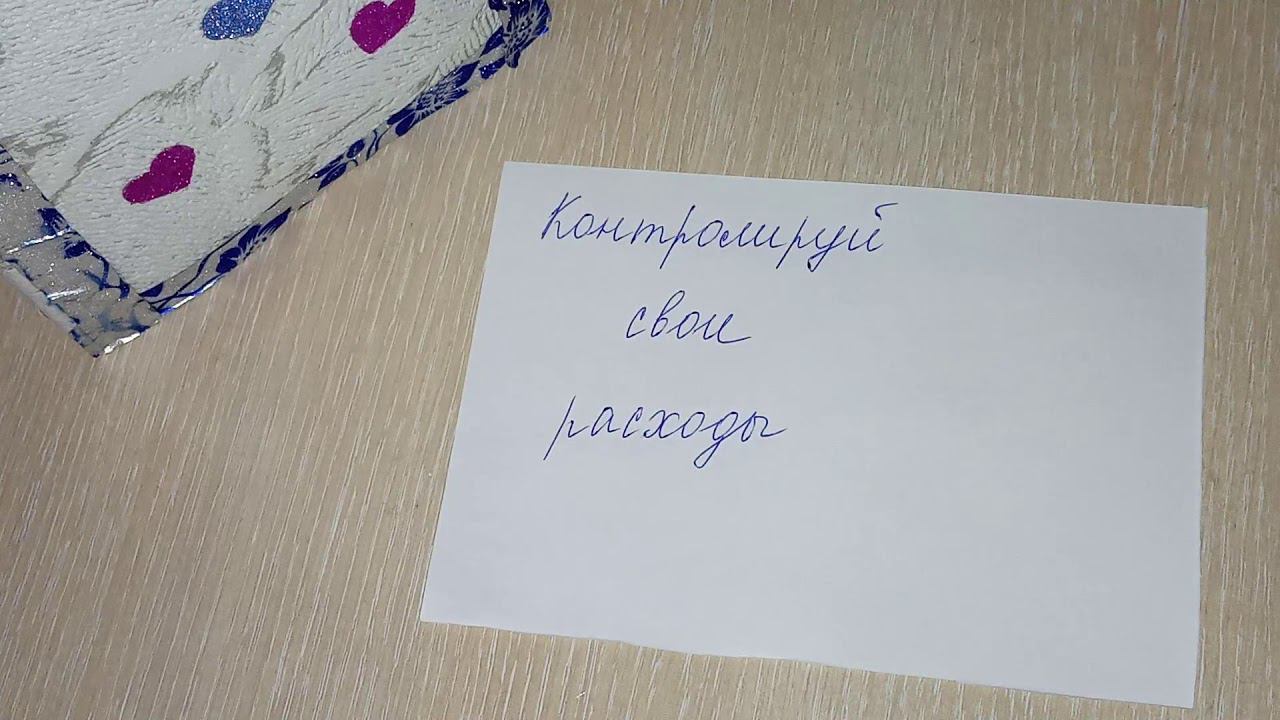 Контролируй
свои
расходы